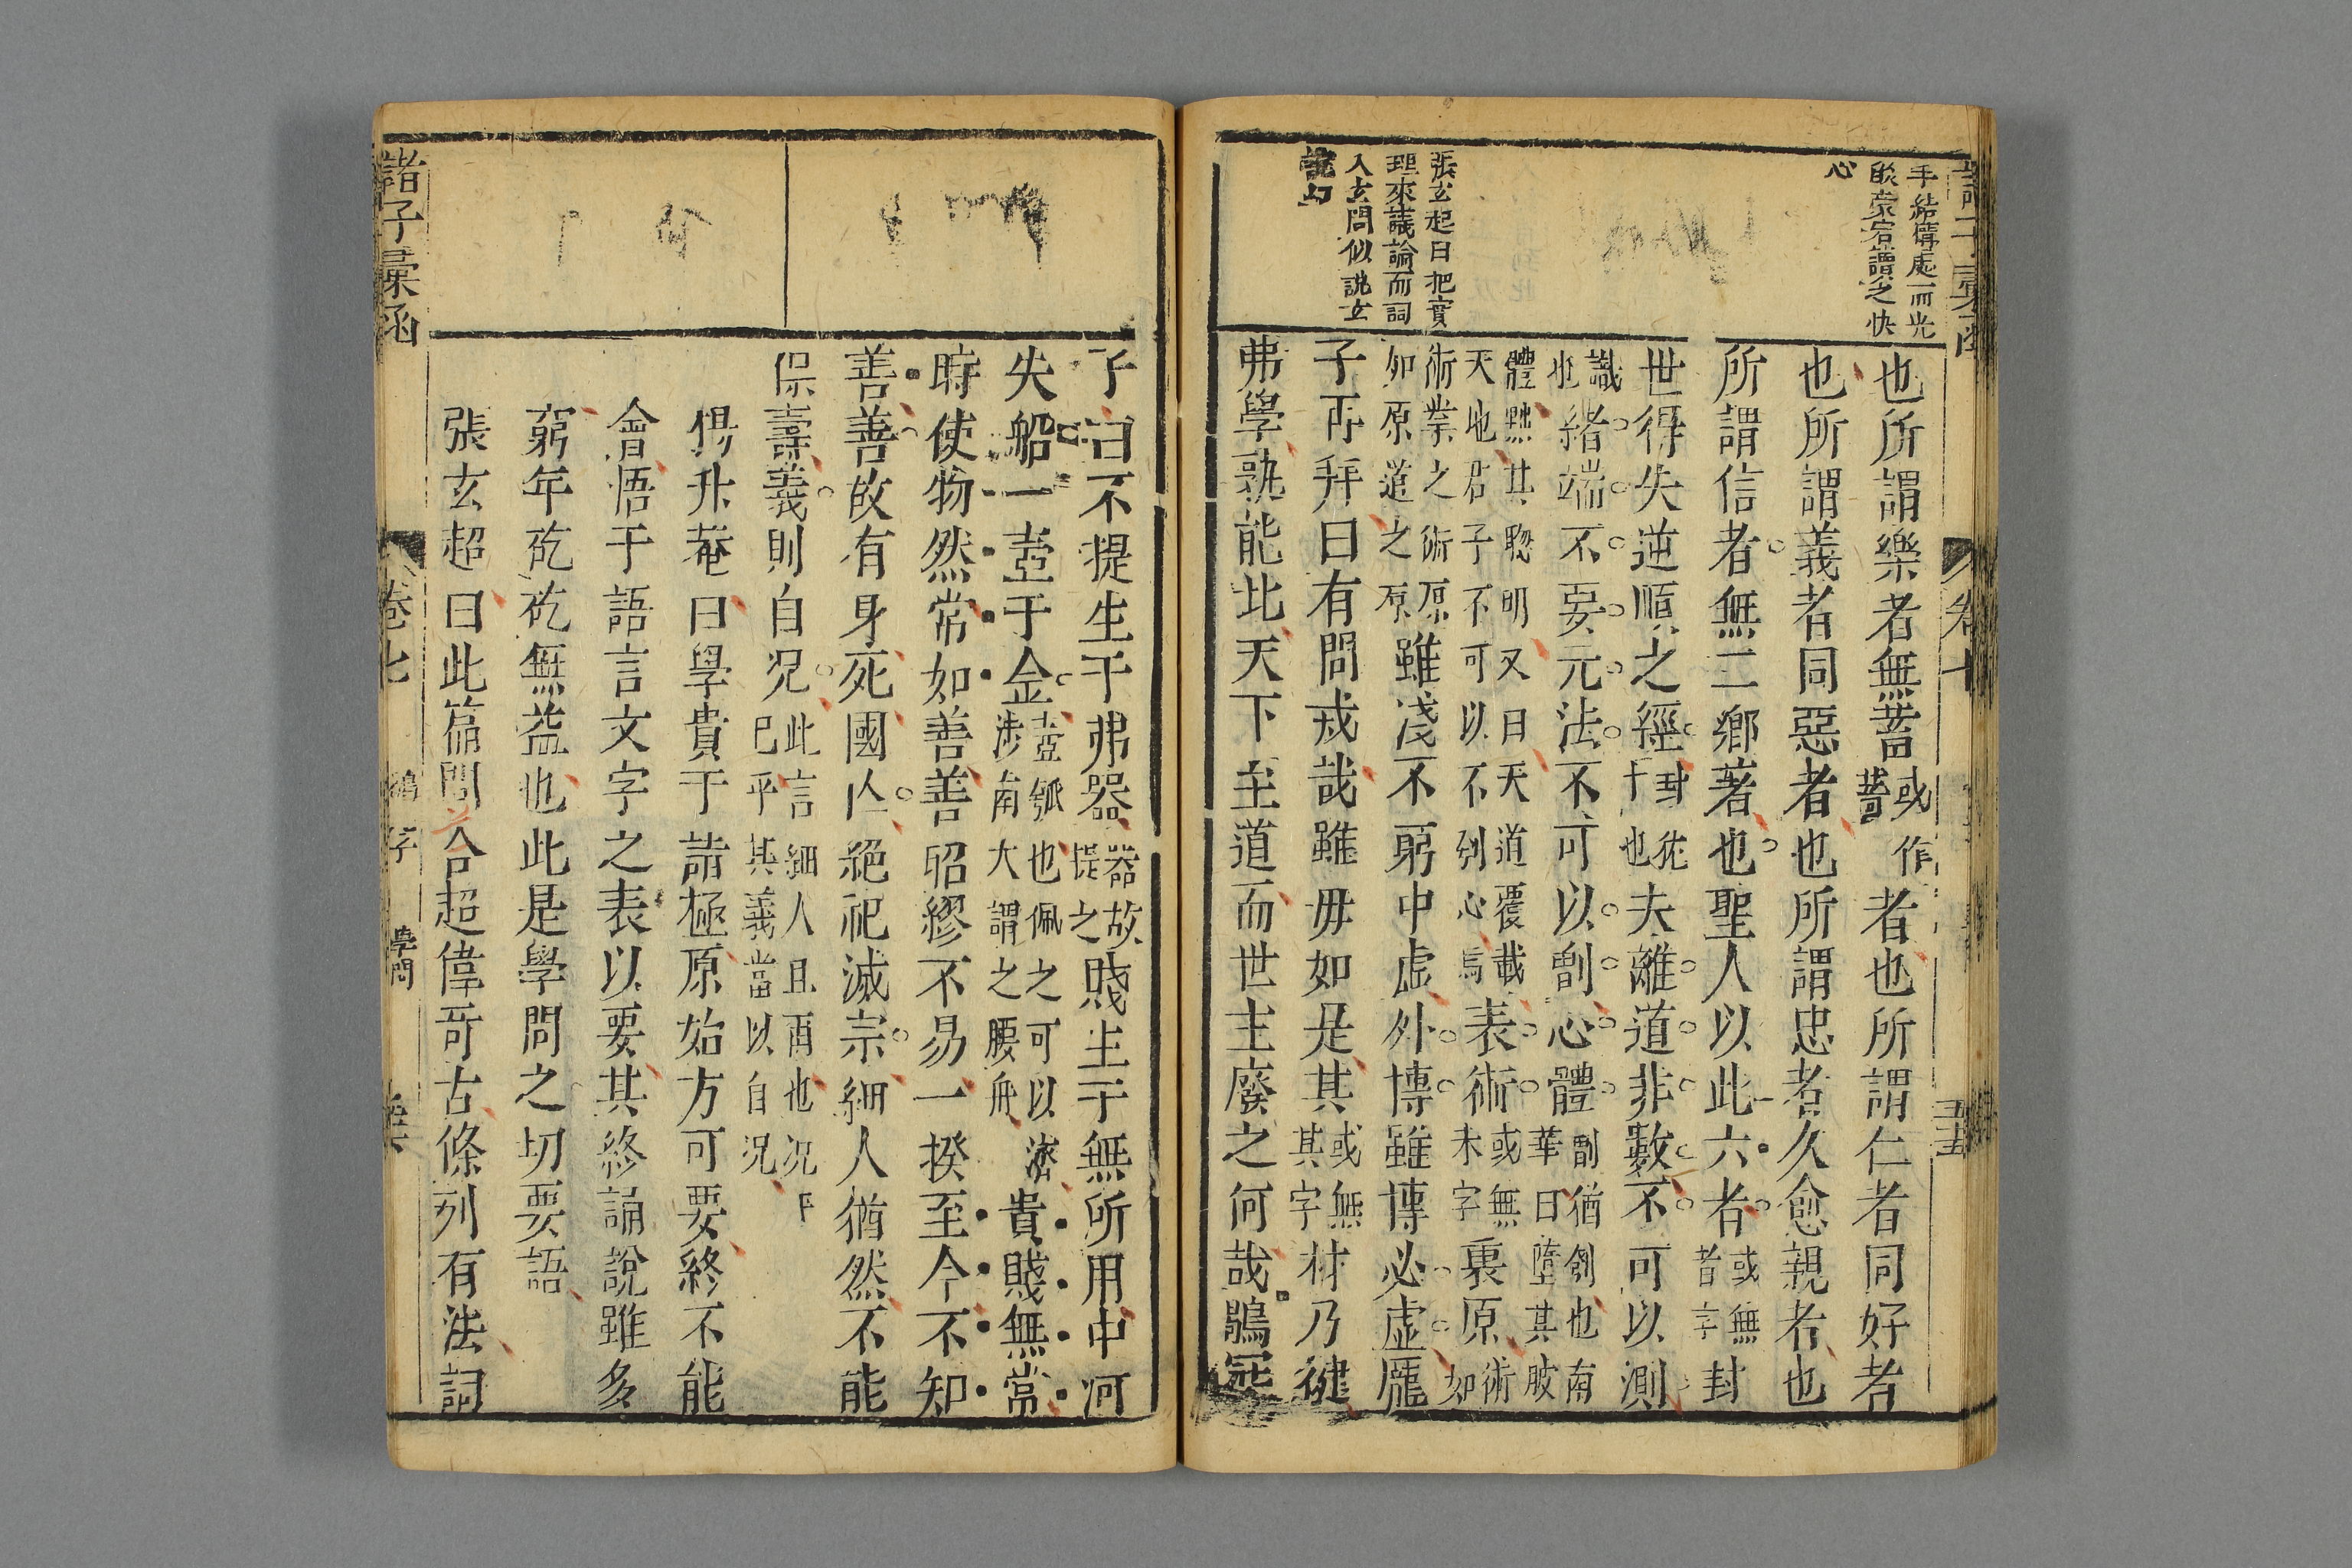 手結構處一而光
燄蒙宕讀之快
心
張玄超曰把實
理來議論而詞
入玄間似說玄
說幻
也所謂樂者無菑或作菑者也所謂仁者同好者
也所謂義者同惡者也所謂忠者久愈親者也
所謂信者無二鄉著也聖人以此六者或無者字封
世得失逆順之經封从十也夫離道非數不可以測
識也緒端不要元法不可以劊心體劊猶刳也南華曰墮其肢
體黜其聰明又曰天道覆載天地君子不可以不刳心焉表術或無未字裏原術如
術業之術原如原道之原雖淺不窮中虛外博雖博必虛龐
子再拜曰有問戎哉雖毋如是其或無其字材乃健
弗學孰能此天下至道而世主廢之何哉鶡冠
子曰不提生于弗器器故提之賤生于無所用中河
失船一壺于金壺瓠也佩之可以濟涉南大謂之腰舟貴賤無常
時使物然常如善善昭繆不易一揆至今不知
善善故有身死國亾絕祀滅宗細人猶然不能
保壽義則自況此言細人且爾也况平已乎其義當以自況
楊升菴曰學貴于諳極原始方可要終不能
會悟于語言文字之表以要其終誦說雖多
窮年矻矻無益也此是學問之切要語
張玄超曰此篇問荅超偉奇古條列有法詞
諸子彙函
卷七
學問